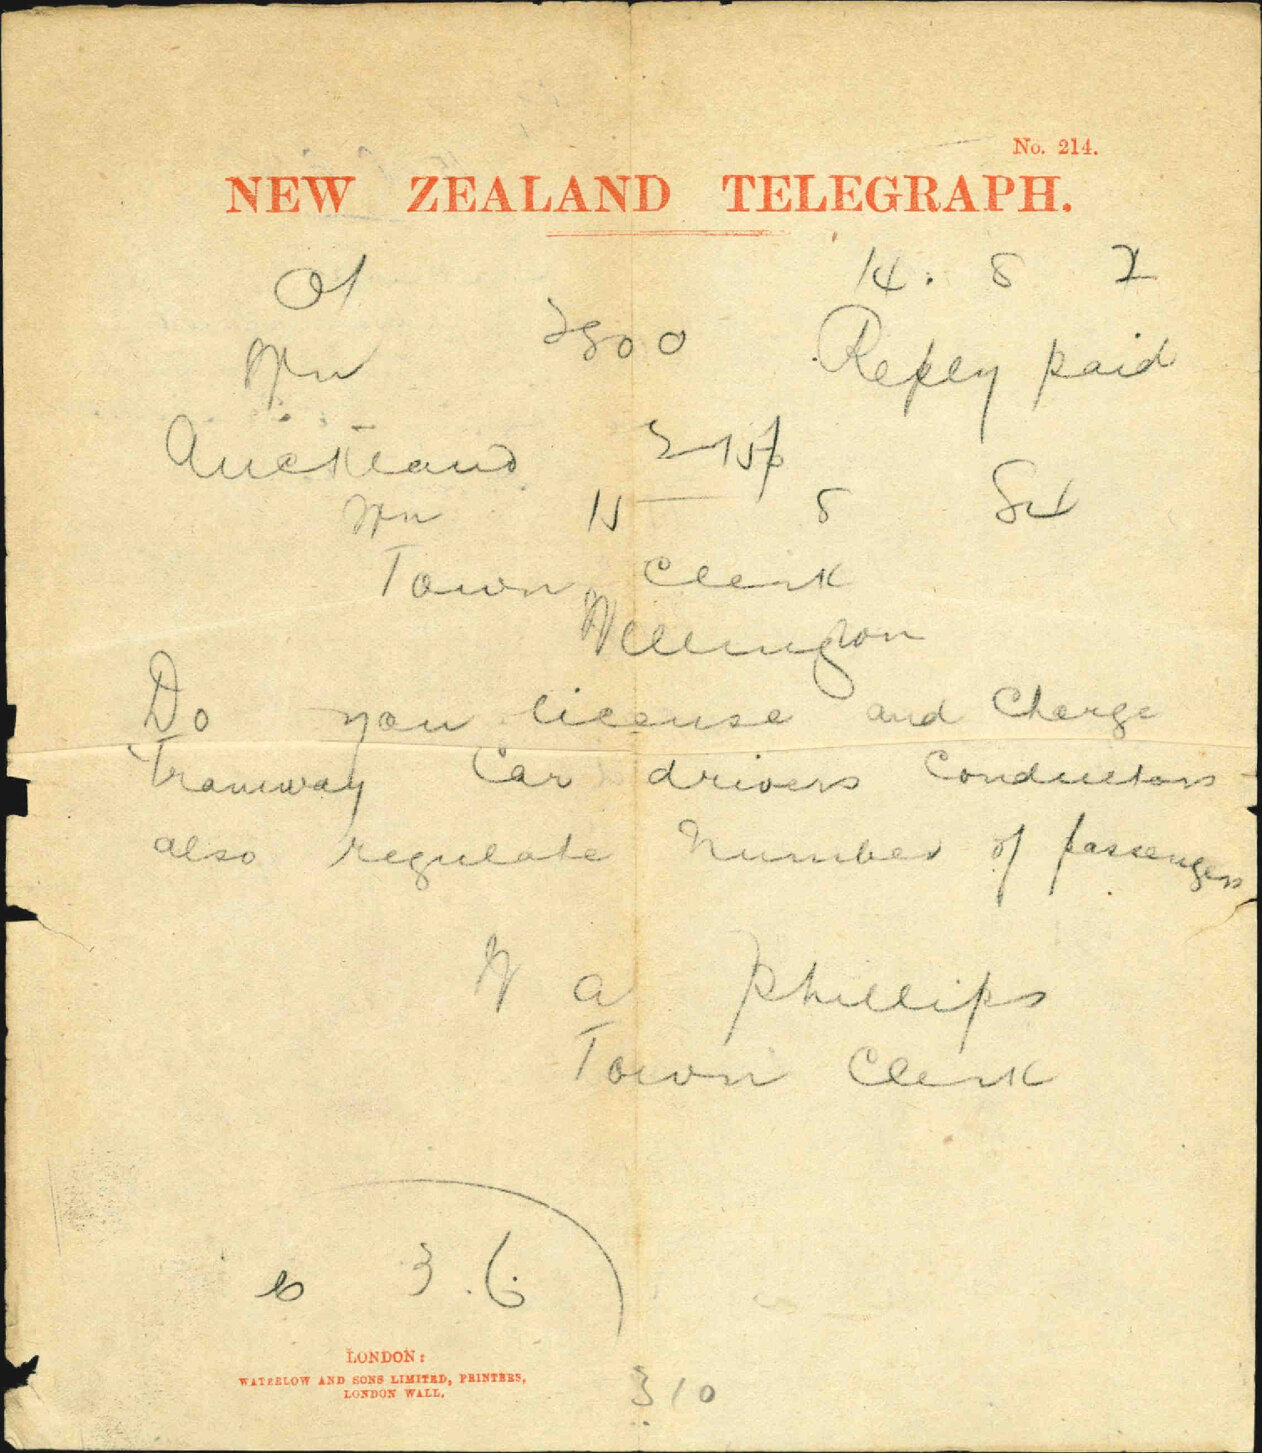 No. 214.
NEW ZEALAND TELEGRAPH.
14. 8 2
Wn 2800 Reply paid
Auckland 2 15p
Wn 15 8
Town Clerk
Wellington
Do you license and Charge
Tramway Car drivers Conductors
also regulate Number of passengers
W A Phillips
Town Clerk
3.6
LONDON:
WATERLOW AND SONS LIMITED, PRINTERS,
LONDON WALL.
310